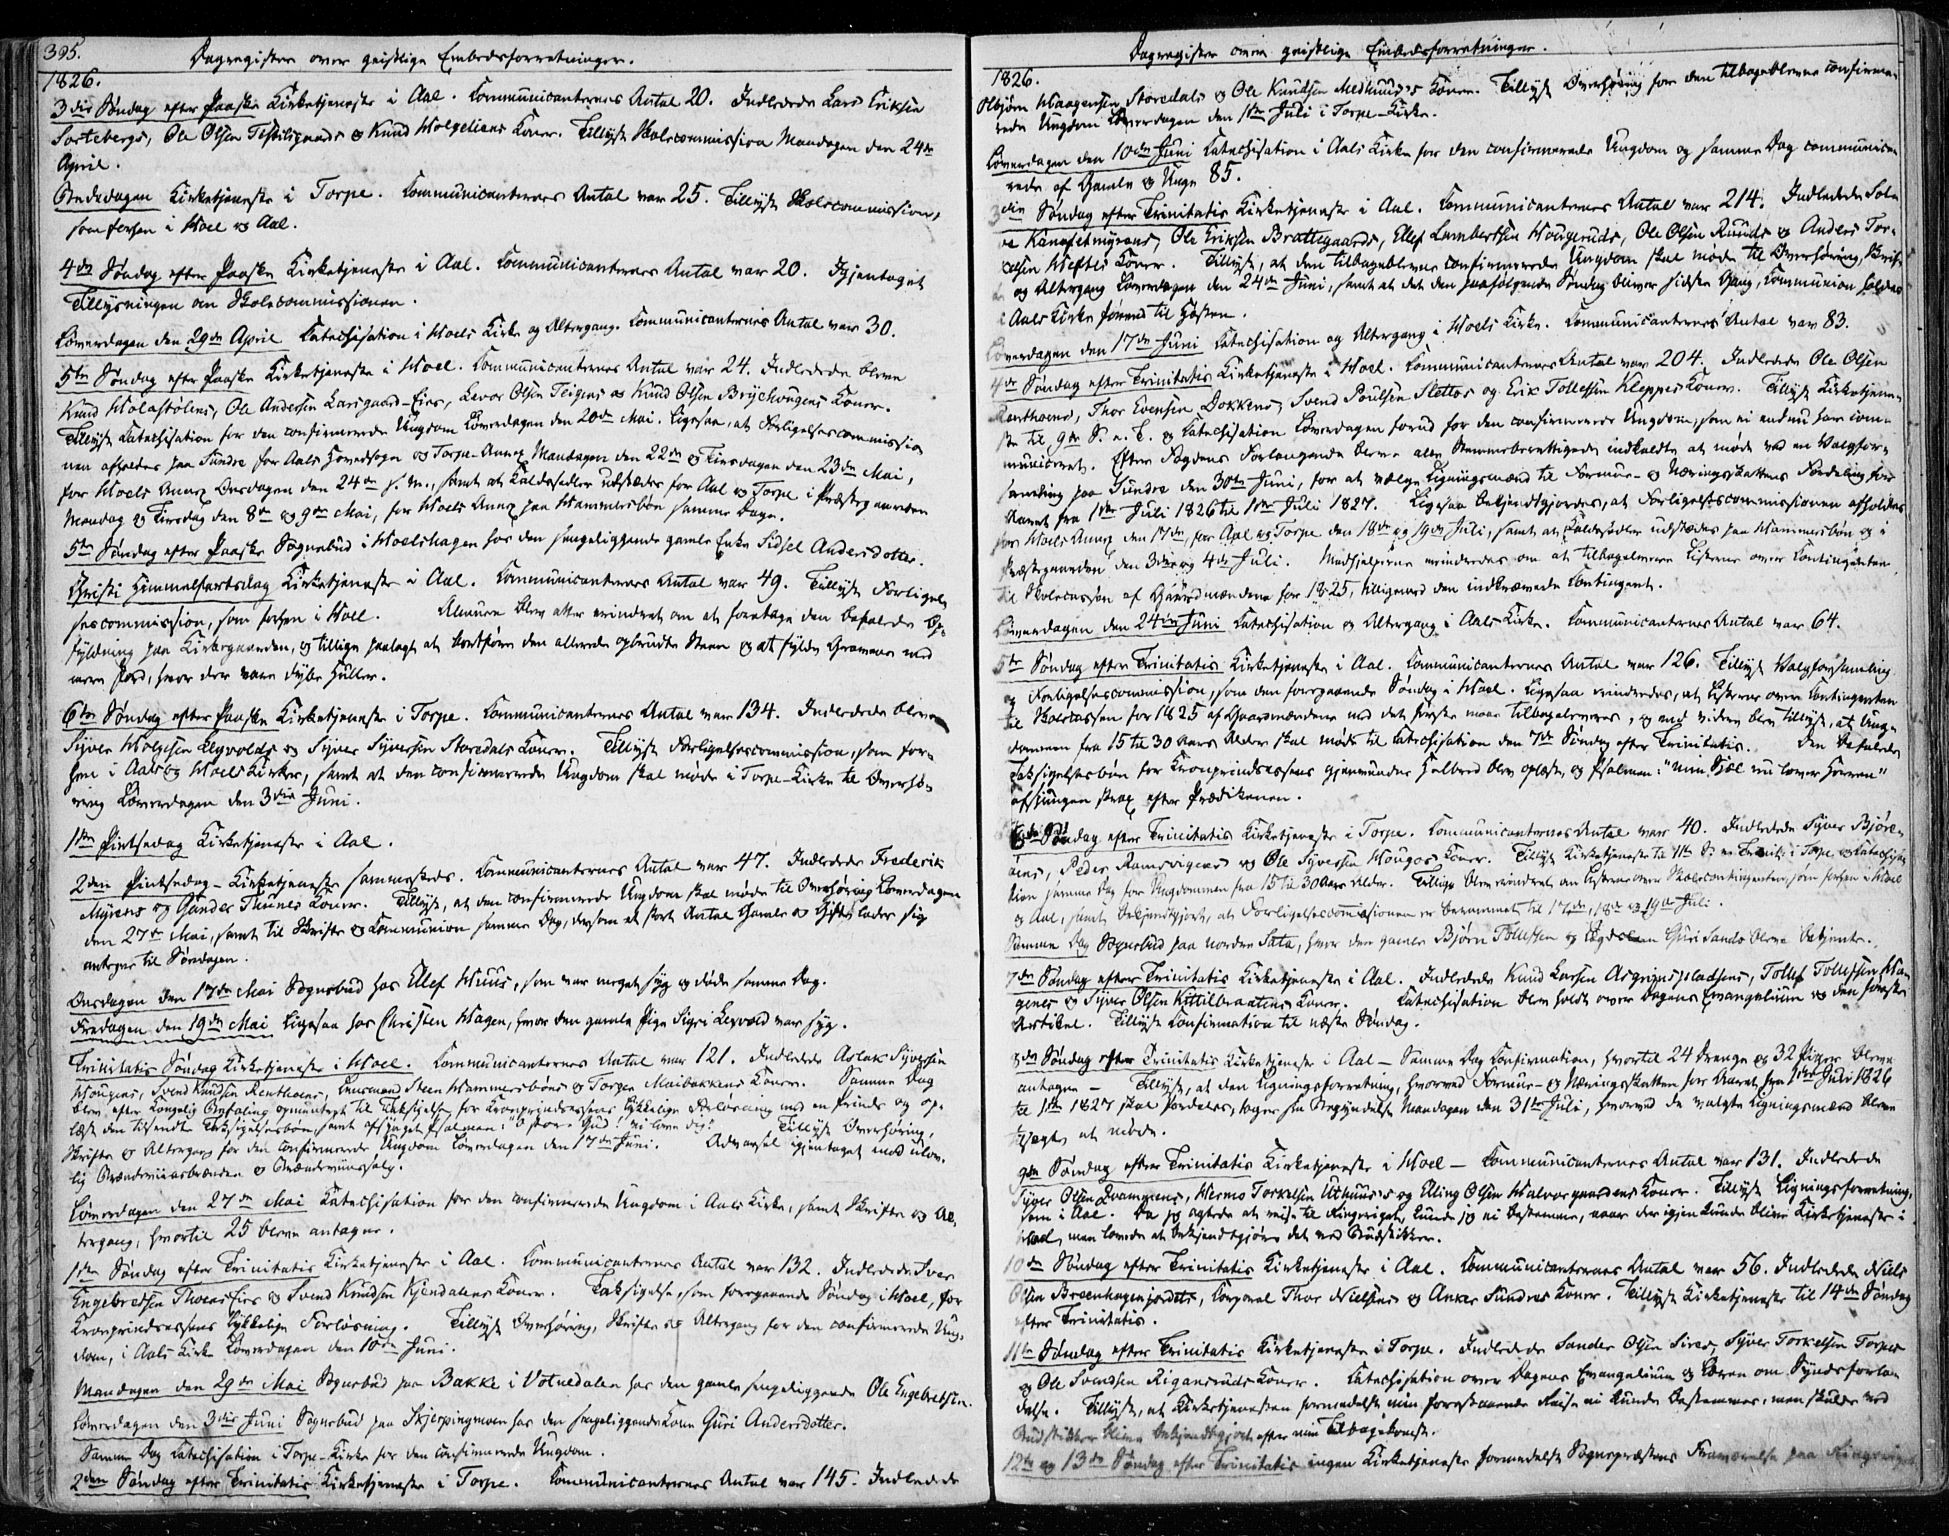 395.
Dagregister over geistlige Embedsforretninger.
1826.
3die Søndag efter Paaske Kirketjeneste i Aal. Communicanternes Antal 20. Indledede Lars Eriksen
Sortebergs, Ole Olsen og Knud Konar. Tillyst Skolecommission Mandagen den 24de
April.
Onsdagen Kirketjeneste i Torpe. Communicanternes Antal var 25. Tillyst Skolecommission,
som forhen i Hoel og Aal.
4de Søndag efter Paaske Kirketjeneste i Aal. Communicanternes Antal var 20. Igjentaget
Tillysningen om Skolecommissionen.
Løverdagen den 29de April Catechisation i Hoels Kirke og Altergang. Communicanternes Antal var 30.
5te Søndag efter Paaske Kirketjeneste i Hoel. Communicanternes Antal var 24. Indledede bleve
Knud Holastølens, Ole Andersen Larsgaard-Eies, Levor Olsen Teigens og Knud Olsen Konar.
Tillyst Catechisation for den confirmerede Ungdom Løverdagen den 20de Mai. Ligesaa, at Forligelsescommissio
nen afholdes paa Sundre for Aals Hovedsogn og Torpe-Annex Mandagen den 22de og Tirsdagen den 23de Mai,
for Hoels Annex Onsdagen den 24de s. M., samt at Kaldssedler udstædes for Aal og Torpe i Præstegaarden
Mandag og Tirsdag den 8de og 9de Mai, for Hoels Annex paa Hammersbøn samme Dage.
5te Søndag efter Paaske Sognebud i Hoelshagen hos den sengeliggende gamle Enke Sidsel Andersdotter.
Christi Himmelfartsdag Kirketjeneste i Aal. Communicanternes Antal var 49. Tillyst Forligel-
sescommission, som forhen i Hoel. Almuen blev atter erindret om at foretage den befalede Op-
fyldning paa Kirkegaarden, og tillige paalagt at bortføre den allerede opbrudte Steen og at fylde Gravene med
mere Jord, hvor der vare dybe Huller.
6te Søndag efter Paaske Kirketjeneste i Torpe. Communicanternes Antal var 134. Indledede bleve
Syver Holgesen Legvolds og Syver Syversen Storedals Konar. Tillyst Forligelsescommission, som for-
hen i Aals og Hoels Kirker, samt at den confirmerede Ungdom skal møde i Torpe-Kirke til Overhø-
ring Løverdagen den 3die Juni.
1ste Pintsedag Kirketjeneste i Aal.
2den Pintsedag - Kirketjeneste sammesteds. Communicanternes Antal var 47. Indledede Frederik
Myrens og Gunder Thunes Konar. Tillyst, at den confirmerede Ungdom skal møde til Overhøring Løverdagen
den 27de Mai, samt til Skrifte og Communion samme Dag, dersom et stort Antal Gamle og Gifte lader sig
antegne til Søndagen.
Onsdagen den 17de Mai Sognebud hos Ellef Huus, som var meget syg og døde samme Dag.
Fredagen den 19de Mai Ligesaa hos Christen Hagen, hvor den gamle Pige Sigri Legvold var syg.
Trinitatis Søndag Kirketjeneste i Hoel. Communicanternes Antal var 121. Indledede Aslak Syversen
Hougens, Svend Knudsen Renthoens, Lensmand Steen Hammersbøns og Torger Maibakkens Konar. Samme Dag
blev efter kongelig Befaling opmuntret til Taksigelse for Kronprindsessens lykkelige Forløsning med en Prinds og op-
læst den tilsendte Taksigelsesbøn, samt afsjunget Psalmen: "O store Gud! vi love dig." Tillyst Overhøring,
Skrifte og Altergang for den confirmerede Ungdom Løverdagen den 17de Juni. Advarsel igjentaget mod ulov-
lig Brændeviinsbrænden og Brændeviinssalg.
Løverdagen den 27de Mai Catechisation for den confirmerede Ungdom i Aals Kirke, samt Skrifte og Al-
tergang, hvortil 25 bleve antagne.
1ste Søndag efter Trinitatis Kirketjeneste i Aal. Communicanternes Antal var 132. Indledede Iver
Engebretsen Thoens-Eies og Svend Knudsen Kjendalens Konar. Taksigelse, som foregaaende Søndag i Hoel, for
Kronprindsessens lykkelige Forløsning. Tillyst Overhøring, Skrifte og Altergang for den confirmerede Ung-
dom, i Aals Kirke Løverdagen den 10de Juni.
Mandagen den 29de Mai Sognebud paa Bakke i Votnedalen hos den gamle sengeliggende Ole Engebretsen.
Løverdagen den 3die Juni Sognebud paa Skjerpingmoen hos den sengeliggende Kone Guri Andersdotter.
Samme Dag Catechisation i Torpe-Kirke for den confirmerede Ungdom.
2den Søndag efter Trinitatis Kirketjeneste i Torpe. Communicanternes Antal var 145. Indledede
Dagregister over geistlige Embedsforretninger.
1826.
Asbjørn Haagensen Storedals og Ole Knudsen Medhuus's Konar. Tillyst Overhøring for den tilbageblevne confirme-
rede Ungdom Løverdagen den 1ste Juli i Torpe-Kirke.
Løverdagen den 10de Juni Catechisation i Aals Kirke for den confirmerede Ungdom og samme Dag communice-
rede af Gamle og Unge 85.
3die Søndag efter Trinitatis Kirketjeneste i Aal. Communicanternes Antal var 214. Indledede
Ole Eriksen Brattegaards, Ellef Lambertsen Hougeruds, Ole Olsen Ruuds og Anders Tor-
Konar. Tillyst, at den tilbageblevne confirmerede Ungdom skal møde til Overhøring, Skrif-
te og Altergang Løverdagen den 24de Juni, samt at det den paafølgende Søndag bliver sidste Gang, Communion holdes
i Aals Kirke førend til Høsten.
Løverdagen den 17de Juni Catechisation og Altergang i Hoels Kirke. Communicanternes Antal var 83.
4de Søndag efter Trinitatis Kirketjeneste i Hoel. Communicanternes Antal var 204. Indledede Ole Olsen
Renthoens, Thor Evensen Dokkens, Svend Poulsen Slettos og Erik Tollefsen Kleppes Konar. Tillyst Kirketjene-
ste til 9de S. e. T. og Catechisation Løverdagen forud for den confirmerede Ungdom, som ei endnu har com-
municeret. Efter Fogdens Forlangende bleve alle Stemmeberettigede indkaldte at møde ved en Valgfor-
samling paa Sundre den 30te Juni, for at vælge Ligningsmænd til Formue- og Næringsskattens Fordeling for
Aaret fra 1ste Juli 1826 til 1ste Juli 1827. Ligesaa bekjendtgjordes, at Forligelsescommissionen afholdes
for Hoels Annex den 17de, for Aal og Torpe den 18de og 19de Juli, samt at Kaldssedler udstædes paa Hammersbøn og i
Præstegaarden den 3die og 4de Juli. Medhjelperne erindredes om at tilbagelevere Listerne over Contingenten
til Skolecassen af Gaardmændene for 1825, tilligemed den indkrævede Contingent.
Løverdagen den 24de Juni Catechisation og Altergang i Aals-Kirke. Communicanternes Antal var 64.
5te Søndag efter Trinitatis Kirketjeneste i Aal. Communicanternes Antal var 126. Tillyst Valgforsamling
og Forligelsescommission, som den foregaaende Søndag i Hoel. Ligesaa erindredes, at Listerne over Contingenten
til Skolecassen for 1825 af Gaardmændene med det første maae tilbageleveres, og end videre blev tillyst, at Ung-
dommen fra 15 til 30 Aars Alder skal møde til Catechisation den 7de Søndag efter Trinitatis. Den befalede
Taksigelsesbøn for Kronprindsessens gjenvundne Helbred blev oplæst, og Psalmen: "Min Sjæl nu lover Herren"
afsjungen strax efter Prædikenen.
6te Søndag efter Trinitatis Kirketjeneste i Torpe. Communicanternes Antal var 40. Indledede Syver Bjøre-
øens, Peder Ramsvigens og Ole Syversen Hougos Konar. Tillyst Kirketjeneste til 11te S. e. Trinit. i Torpe og Catechisa-
tion samme Dag for Ungdommen fra 15 til 30 Aars Alder. Tillige blev erindret om Listerne over Skolecontingenten, som forhen i Hoel
og Aal, samt bekjendtgjort, at Forligelsescommissionen er berammet til 17de, 18de og 19de Juli.
Samme Dag Sognebud paa nordre Sata, hvor den gamle Bjørn Tollefsen og Guri Sando bleve betjente.
7de Søndag efter Trinitatis Kirketjeneste i Aal. Indledede Knud Larsen Asgrimspladsens, Tollef Tollefsen Ha-
gens og Syver Olsen Kittilbraatens Konar. Catechisation blev holdt over Dagens Evangelium og den første
Artikel. Tillyst Confirmation til næste Søndag.
8de Søndag efter Trinitatis Kirketjeneste i Aal - Samme Dag Confirmation, hvortil 24 Drenge og 32 Piger bleve
antagne - Tillyst, at den Ligningsforretning, hvorved Formue- og Næringsskatten for Aaret fra 1ste Juli 1826
til 1ste 1827 skal fordeles, tager sin Begyndelse Mandagen den 31te Juli, hvorved de valgte Ligningsmænd bleve
at møde.
9de Søndag efter Trinitatis Kirketjeneste i Hoel - Communicanternes Antal var 131. Indledede
Syver Olsen Qvammens, Hermo Torkelsen Uthuus's og Elling Olsen Halvorsgaardens Konar. Tillyst Ligningsforretning,
som i Aal. Da jeg agtede at reise til Ringerige, kunde jeg ei bestemme, naar der igjen kunde blive Kirketjeneste i
Hoel, men lovede at bekjendtgjøre det ved Budstikker.
10de Søndag efter Trinitatis Kirketjeneste i Aal. Communicanternes Antal var 56. Indledede Niels
Olsen Breenhagenjordets, Corporal Thor Nielsens og Anker Sundres Konar. Tillyst Kirketjeneste til 14de Søndag
efter Trinitatis.
11te Søndag efter Trinitatis Kirketjeneste i Torpe. Indledede Sander Olsen Sires, Syver Torkelsen Torpes
og Ole Svendsen Rigansruds Konar. Catechisation over Dagens Evangelium og Læren om Syndsforla-
delse. Tillyst, at Kirketjenesten formedelst min forestaaende Reise ei kunde bestemmes, men skulde ved
Budstikker blive bekjendtgjort efter min Tilbagekomst.
12te og 13de Søndag efter Trinitatis ingen Kirketjeneste formedelst Sognepræstens Fraværelse paa Ringerige.